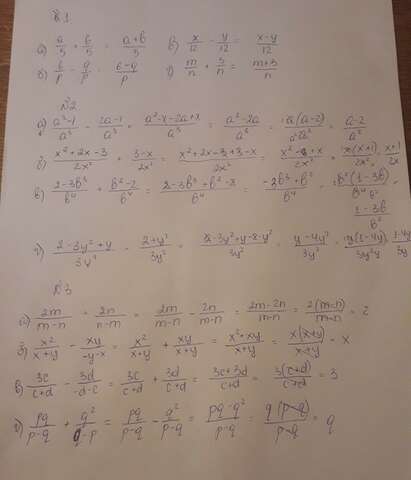 №1
а) a/5 + b/5 = (a+b)/5 в) x/12 - y/12 = (x-y)/12
б) b/p - q/p = (b-q)/p г) m/n + 3/n = (m+3)/n
№2
а) (a²-1)/a³ - (2a-1)/a³ = (a²-1-2a+1)/a³ = (a²-2a)/a³ = a(a-2)/a·a² = (a-2)/a²
б) (x²+2x-3)/2x² + (3-x)/2x² = (x²+2x-3+3-x)/2x² = = x(x+1)/2x² = (x+1)/2x
в) (2-3b³)/b⁴ + (b²-2)/b⁴ = (2-3b³+b²-2)/b⁴ = (-3b³+b²)/b⁴ = b²(1-3b)/b⁴b² =
(1-3b)/b²
г) (2-3y²+y)/3y² - (2+y²)/3y² = (2-3y²+y-2-y²)/3y² = (y-4y²)/3y² = y(1-4y)/3y²y (1-4y)/3y
№3
а) 2m/(m-n) + 2n/(n-m) = 2m/(m-n) - 2n/(m-n) = (2m-2n)/(m-n) = 2(m-n)/(m-n) = 2
б) x²/(x+y) - xy/(-y-x) = x²/(x+y) + xy/(x+y) = (x²+xy)/(x+y) = x(x+y)/(x+y) = x
в) 3c/(c+d) - 3d/(-d-c) = 3c/(c+d) + 3d/(c+d) = (3c+3d)/(c+d) = 3(c+d)/(c+d) = 3
г) pq/(p-q) + q²/(q-p) = pq/(p-q) - q²/(p-q) = (pq-q²)/(p-q) = q(p-q)/(p-q) = q